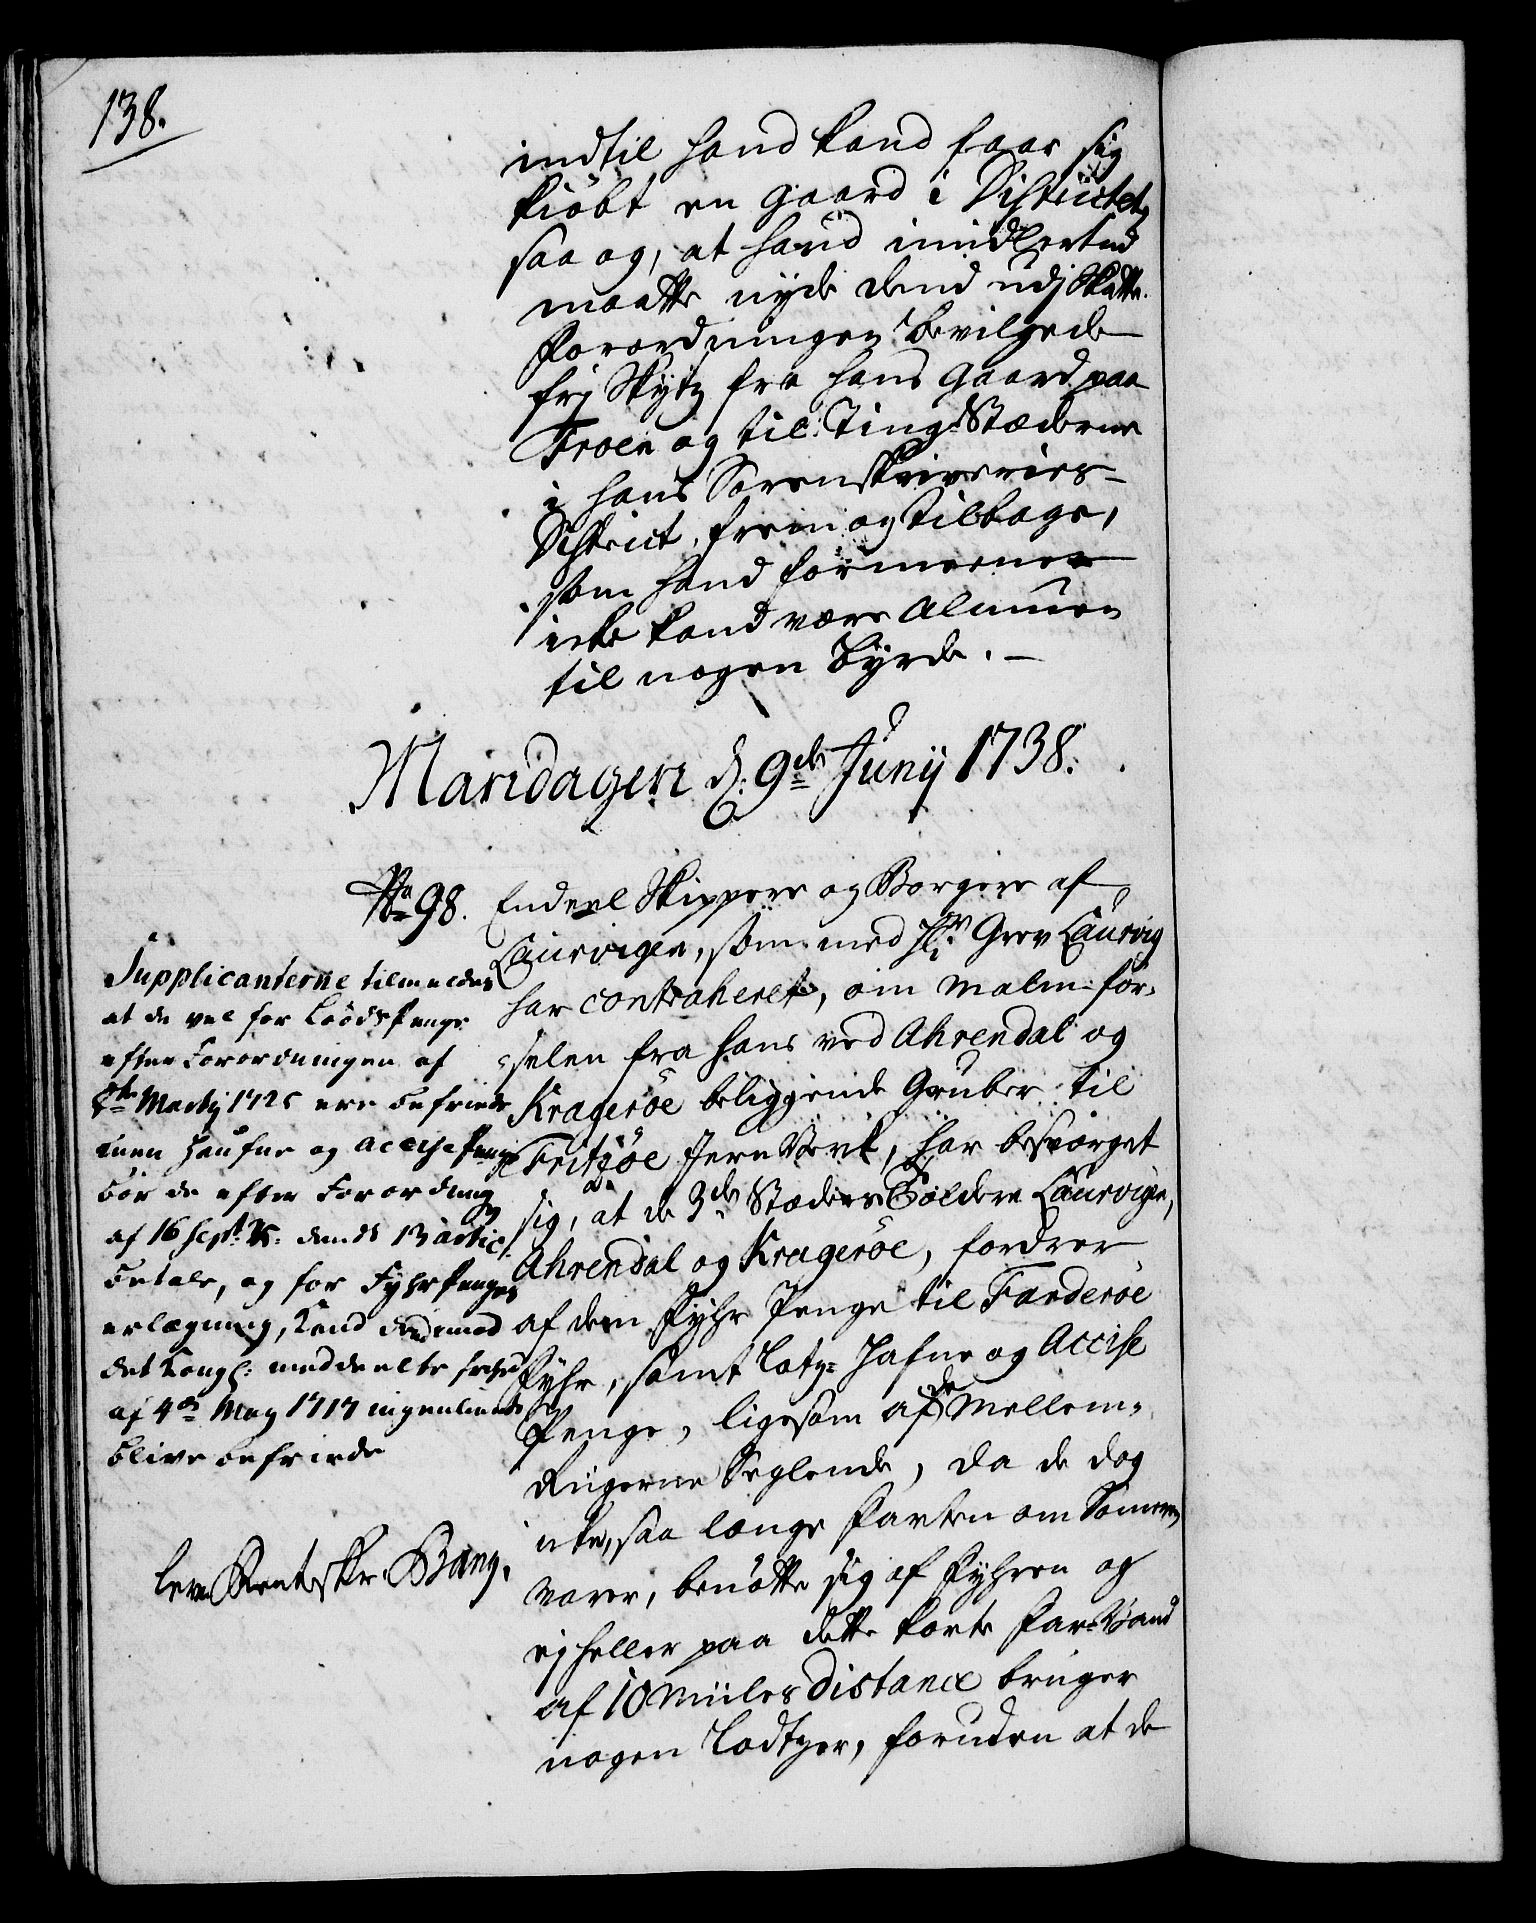 138.
indtil hand kand faae sig
kiöbt en gaard i Districtet,
saa og, at hand imidlertiid
maatte nyde dend udj Skatte
forordningen bevilgede
frj Skytz fra hans Gaard paa
Froen og til Ting-Stæderne
i hans Sorenskriveries-
District, frem og tilbage,
som hand formeener
icke kand være Almuen
til nogen Byrde. -
Mandagen d: 9de Junij 1738.
No 98. Endeel Skippere og Borgere af
Laurvigen, som med Hr. Grev Laurvig
har contraheret, om Malm-før-
selen fra hans ved Ahrendal og
Kragerøe beliggende Gruber til
Fritzøe Jern Værk, har besværget
sig, at de 3de Stæders Toldere Laurvigen,
Ahrendal og Kragerøe, fordrer
af dem Fyhr Penge til Farderøe
Fyhr, samt Lotz- Hafne og Accise
Penge, ligesom af de Mellem-
Rigerne Seglende, da de dog
icke, saa længe Farten om Sommeren
varer, benøtte sig af Fyhren og
ej heller paa dette korte Far-Vand
af 10 Miiles Distance bruger
nogen Lodtzer, foruden at de
Supplicanterne tilmeldes
at de vel for Loods Penge
efter Forordningen af
Martij 1725 ere befriede
men Haufne og Accise Penge
bör de efter Forordning
af 16 Sept: dends 13 artic:
betale, og for Fyhr Penges
erlægning, kand de imod
det Kongl: meddeelte
af 4de May 1717 ingenlunde
blive befriede
lev. Renteskr. Bang.